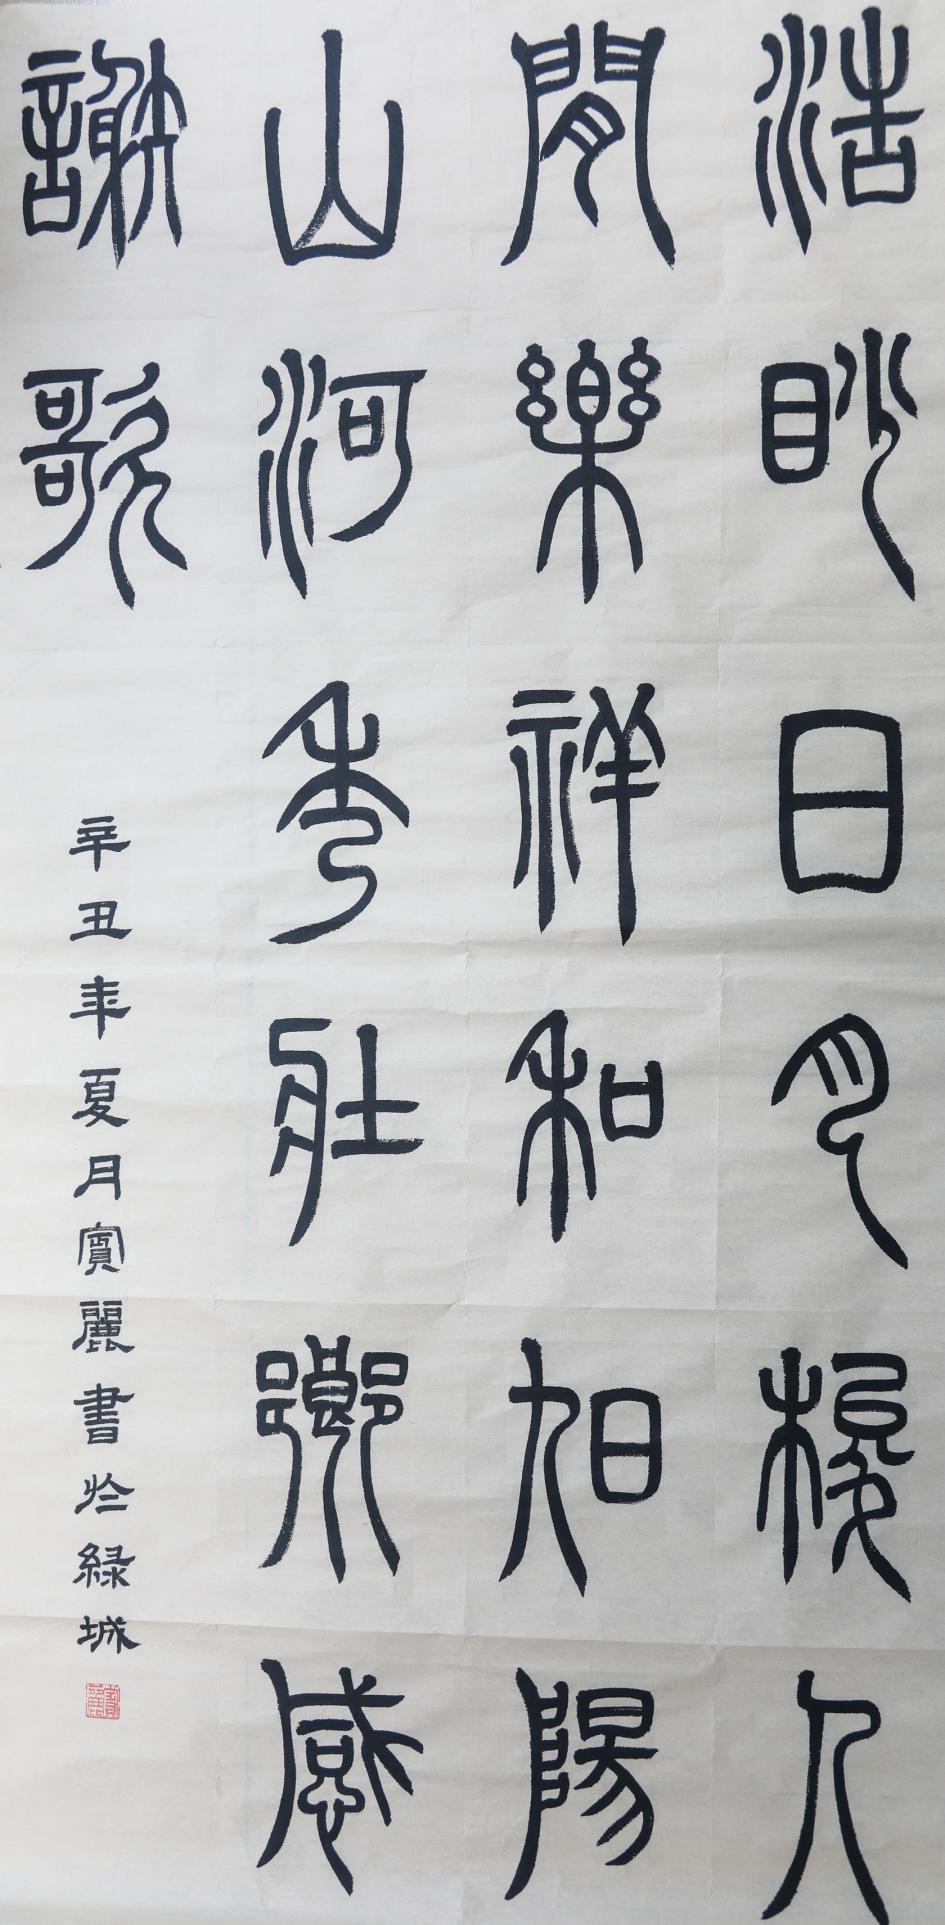 浩眇日月梭人
閒樂祥和旭陽
山河秀壯鄉感
謝歌
辛丑年夏月賓麗書於緑城